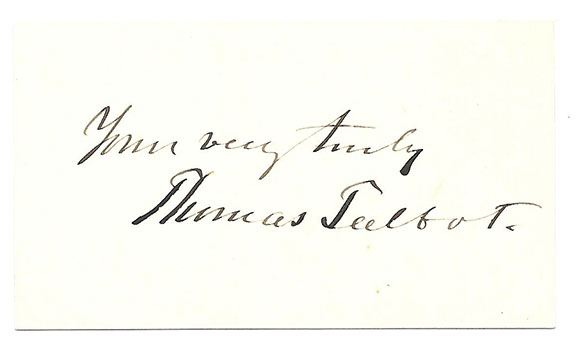 Yours very truly
Thomas Talbot.